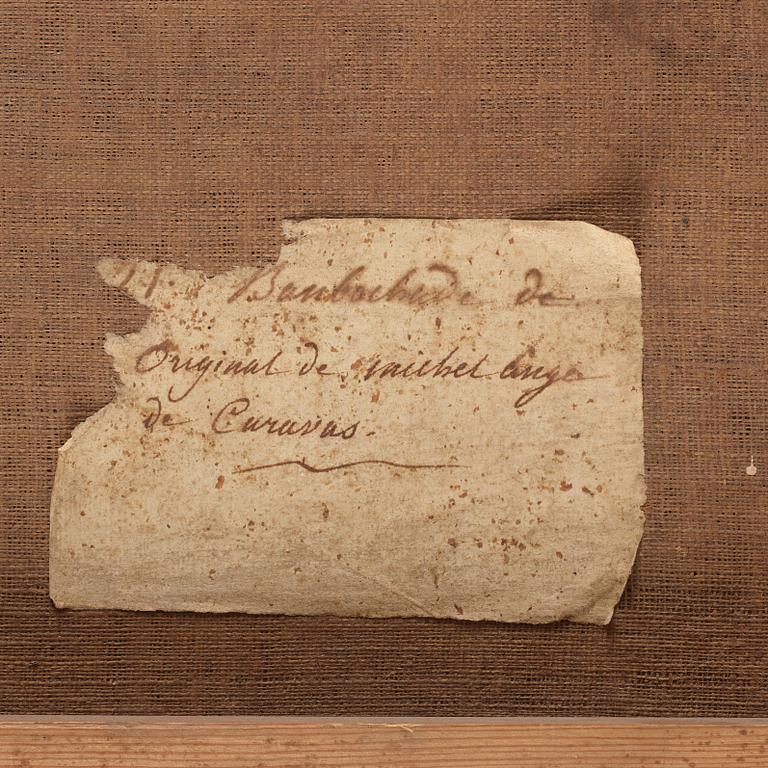 Bambochade de
Original de michel ange
de Caravas.